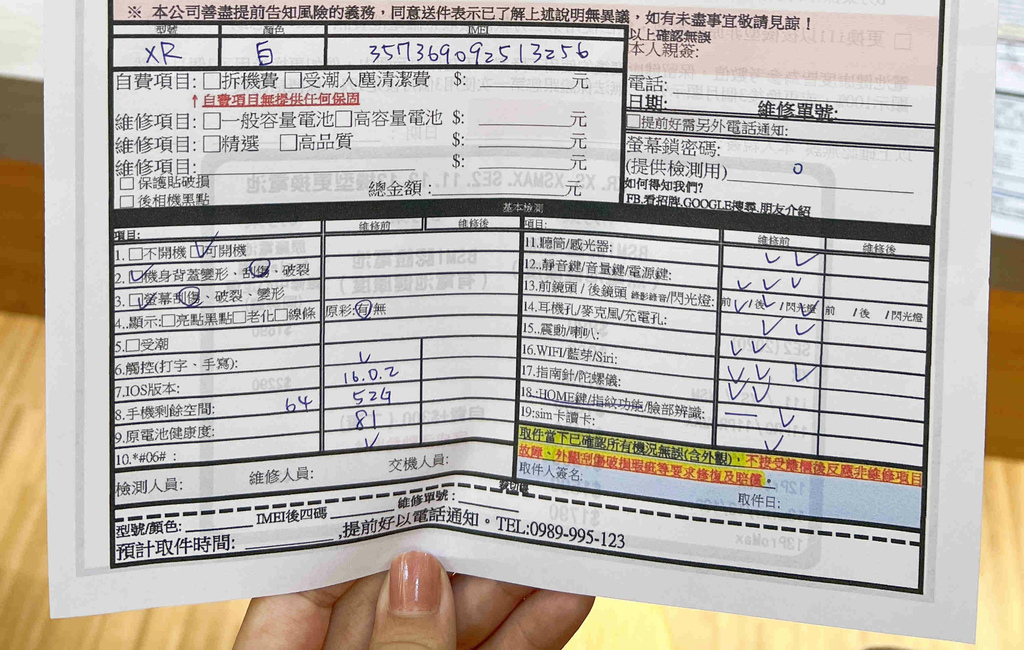 ※ 本公司善盡提前告知風險的義務，同意送件表示已了解上述說明無異議，如有未盡事宜敬請見諒！
型號 顏色 IMEI
XR 白 357369092513256
以上確認無誤
本人親簽:
自費項目: □拆機費 □受潮入塵清潔費 $: 元
↑自費項目無提供任何保固
電話:
日期: 維修單號:
維修項目: □一般容量電池□高容量電池 $: 元
□提前好需另外電話通知:
維修項目: □精選 □高品質 $: 元
螢幕鎖密碼:
(提供檢測用) 0
維修項目: $: 元
□ 保護貼破損
□ 後相機黑點 總金額: 元
如何得知我們?
FB.看招牌.GOOGLE搜尋.朋友介紹
基本檢測
項目: 維修前 維修後 項目: 維修前 維修後
1. □不開機 ☑可開機
2. ☑機身背蓋變形、刮傷、破裂
3. ☑螢幕刮傷、破裂、變形
4.顯示:□亮點黑點□老化□線條 原彩:有/無
5.□受潮
6.觸控(打字、手寫): ✓
7.IOS版本: 16.0.2
8.手機剩餘空間: 64 52G
9.原電池健康度: 81
10.*#06#: ✓
11.聽筒/感光器: ✓ ✓
12.靜音鍵/音量鍵/電源鍵: ✓ ✓ ✓
13.前鏡頭/後鏡頭 錄影錄音/閃光燈: 前✓/後✓/閃光燈✓ 前 /後 /閃光燈
14.耳機孔/麥克風/充電孔: ✓ ✓
15..震動/喇叭: ✓ ✓
16.WIFI/藍芽/Siri: ✓ ✓ ✓
17.指南針/陀螺儀: ✓ ✓
18..HOME鍵/指紋功能/臉部辨識: — ✓
19:sim卡讀卡: ✓
取件當下已確認所有機況無誤(含外觀)，不接受離櫃後反應非維修項目
故障、外觀刮傷破損瑕疵等要求修復及賠償。
檢測人員: 維修人員: 交機人員:
取件人簽名: 取件日:
裁切線
型號/顏色: IMEI後四碼 維修單號:
預計取件時間: ,提前好以電話通知。TEL:0989-995-123